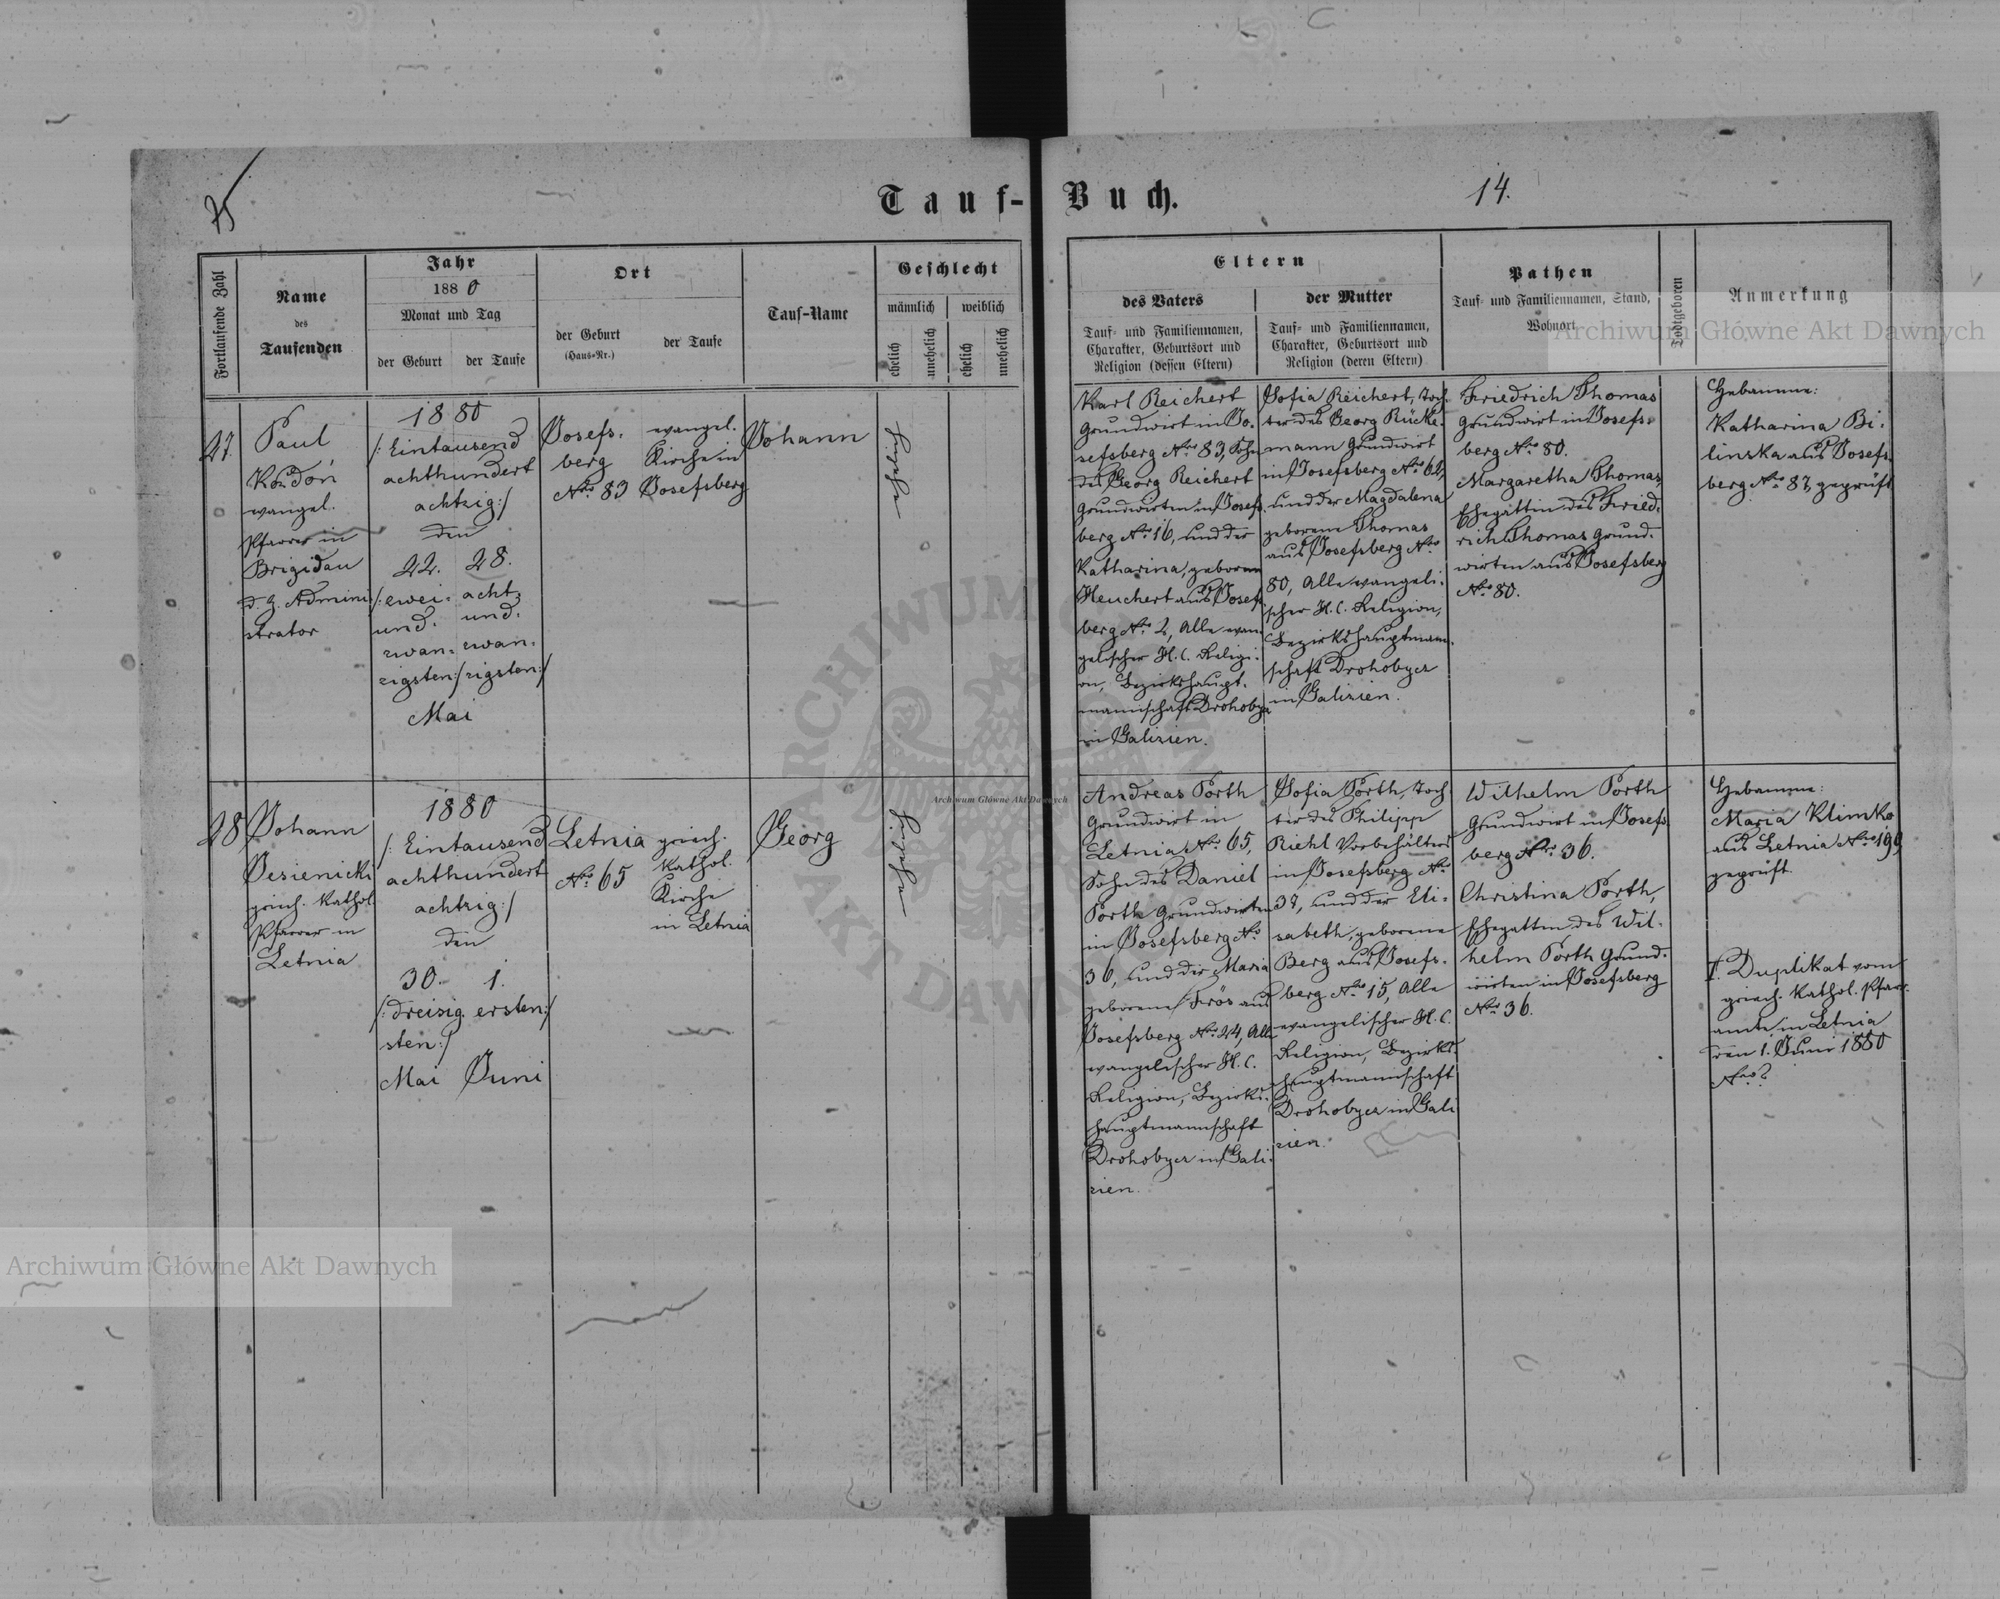 Tauf-Buch.
14.
Fortlaufende Zahl
Name
des
Taufenden
Jahr
1880
Monat und Tag
der Geburt
der Taufe
Ort
der Geburt
(Haus-Nr.)
der Taufe
Tauf-Name
Geschlecht
männlich
weiblich
ehelich
unehelich
ehelich
unehelich
Eltern
des Vaters
Tauf- und Familiennamen,
Charakter, Geburtsort und
Religion (dessen Eltern)
der Mutter
Tauf- und Familiennamen,
Charakter, Geburtsort und
Religion (deren Eltern)
Pathen
Tauf- und Familiennamen, Stand,
Wohnort
Todtgeboren
Anmerkung
27.
Paul
evangel.
Pfarrer in
Brigidau
d. z. Admini-
strator
1880
/: Eintausend
achthundert
achtzig :/
den
22. 28.
/: zwei- acht-
und- und-
zwan- zwan-
zigsten :/ zigsten :/
Mai
Josefs-
berg
Nro 83
evangel.
Kirche in
Josefsberg
Johann
ehelich
Karl Reichert
Grundwirt in Jo-
sefsberg Nro 83, Sohn
des Georg Reichert
Grundwirten in Josefs-
berg No 16, und der
Katharina, geborene
Heuchert aus Josefs-
berg No 2, Alle evan-
gelischer H. C. Religi-
on, Bezirkshaupt-
mannschaft Drohobycz
in Galizien.
Sofia Reichert, Toch-
ter des Georg Rücke-
mann Grundwirt
in Josefsberg No 62,
und der Magdalena
geborene Thomas
aus Josefsberg Nro
80, Alle evangeli-
scher H. C. Religion,
Bezirkshauptmann-
schaft Drohobycz
in Galizien.
Friedrich Thomas
Grundwirt in Josefs-
berg Nro 80.
Margaretha Thomas,
Ehegattin des Fried-
rich Thomas Grund-
wirten aus Josefsberg
Nro 80.
Hebamme:
Katharina Bi-
linska aus Josefs-
berg Nro 87, geprüft
28
Johann
Jesienicki
griech. Kathol.
Pfarrer in
Letnia
1880
/: Eintausend
achthundert
achtzig :/
den
30. 1.
/: dreisig- ersten :/
sten :/
Mai Juni
Letnia
No 65
griech.
Kathol.
Kirche
in Letnia
Georg
ehelich
Andreas Porth
Grundwirt in
Letnia No 65,
Sohn des Daniel
Porth Grundwirten
in Josefsberg No
36, und der Maria
geborene Frös aus
Josefsberg Nro 24, Alle
evangelischer H. C.
Religion, Bezirks-
hauptmannschaft
Drohobycz in Gali-
zien.
Sofia Porth, Toch
ter des Philipp
Riehl Vorbehälters
in Josefsberg Nro
38, und der Eli-
sabeth, geborene
Berg aus Josefs-
berg Nro 15, Alle
evangelischer H. C.
Religion, Bezirks-
hauptmannschaft
Drohobycz in Gali
zien.
Wilhelm Porth
Grundwirt in Josefs-
berg Nro 36.
Christina Porth,
Ehegattin des Wil-
helm Porth Grund-
wirten in Josefsberg
Nro 36.
Hebamme:
Maria Klimko
aus Letnia Nro 199
geprüft.
Duplikat vom
griech. Kathol. Pfarr-
amte in Letnia
den 1. Juni 1880
Nro ?
Archiwum Główne Akt Dawnych
Archiwum Główne Akt Dawnych
Archiwum Główne Akt Dawnych